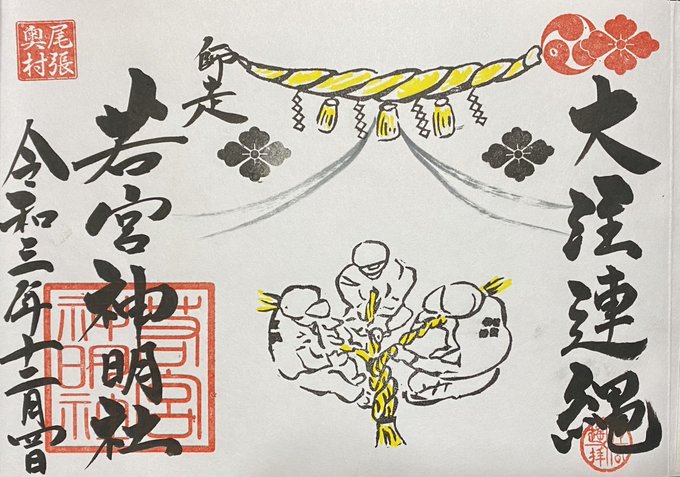 大注連縄
師走
尾張
奥村
若宮神明社
若宮
神明社
令和三年十二月四日